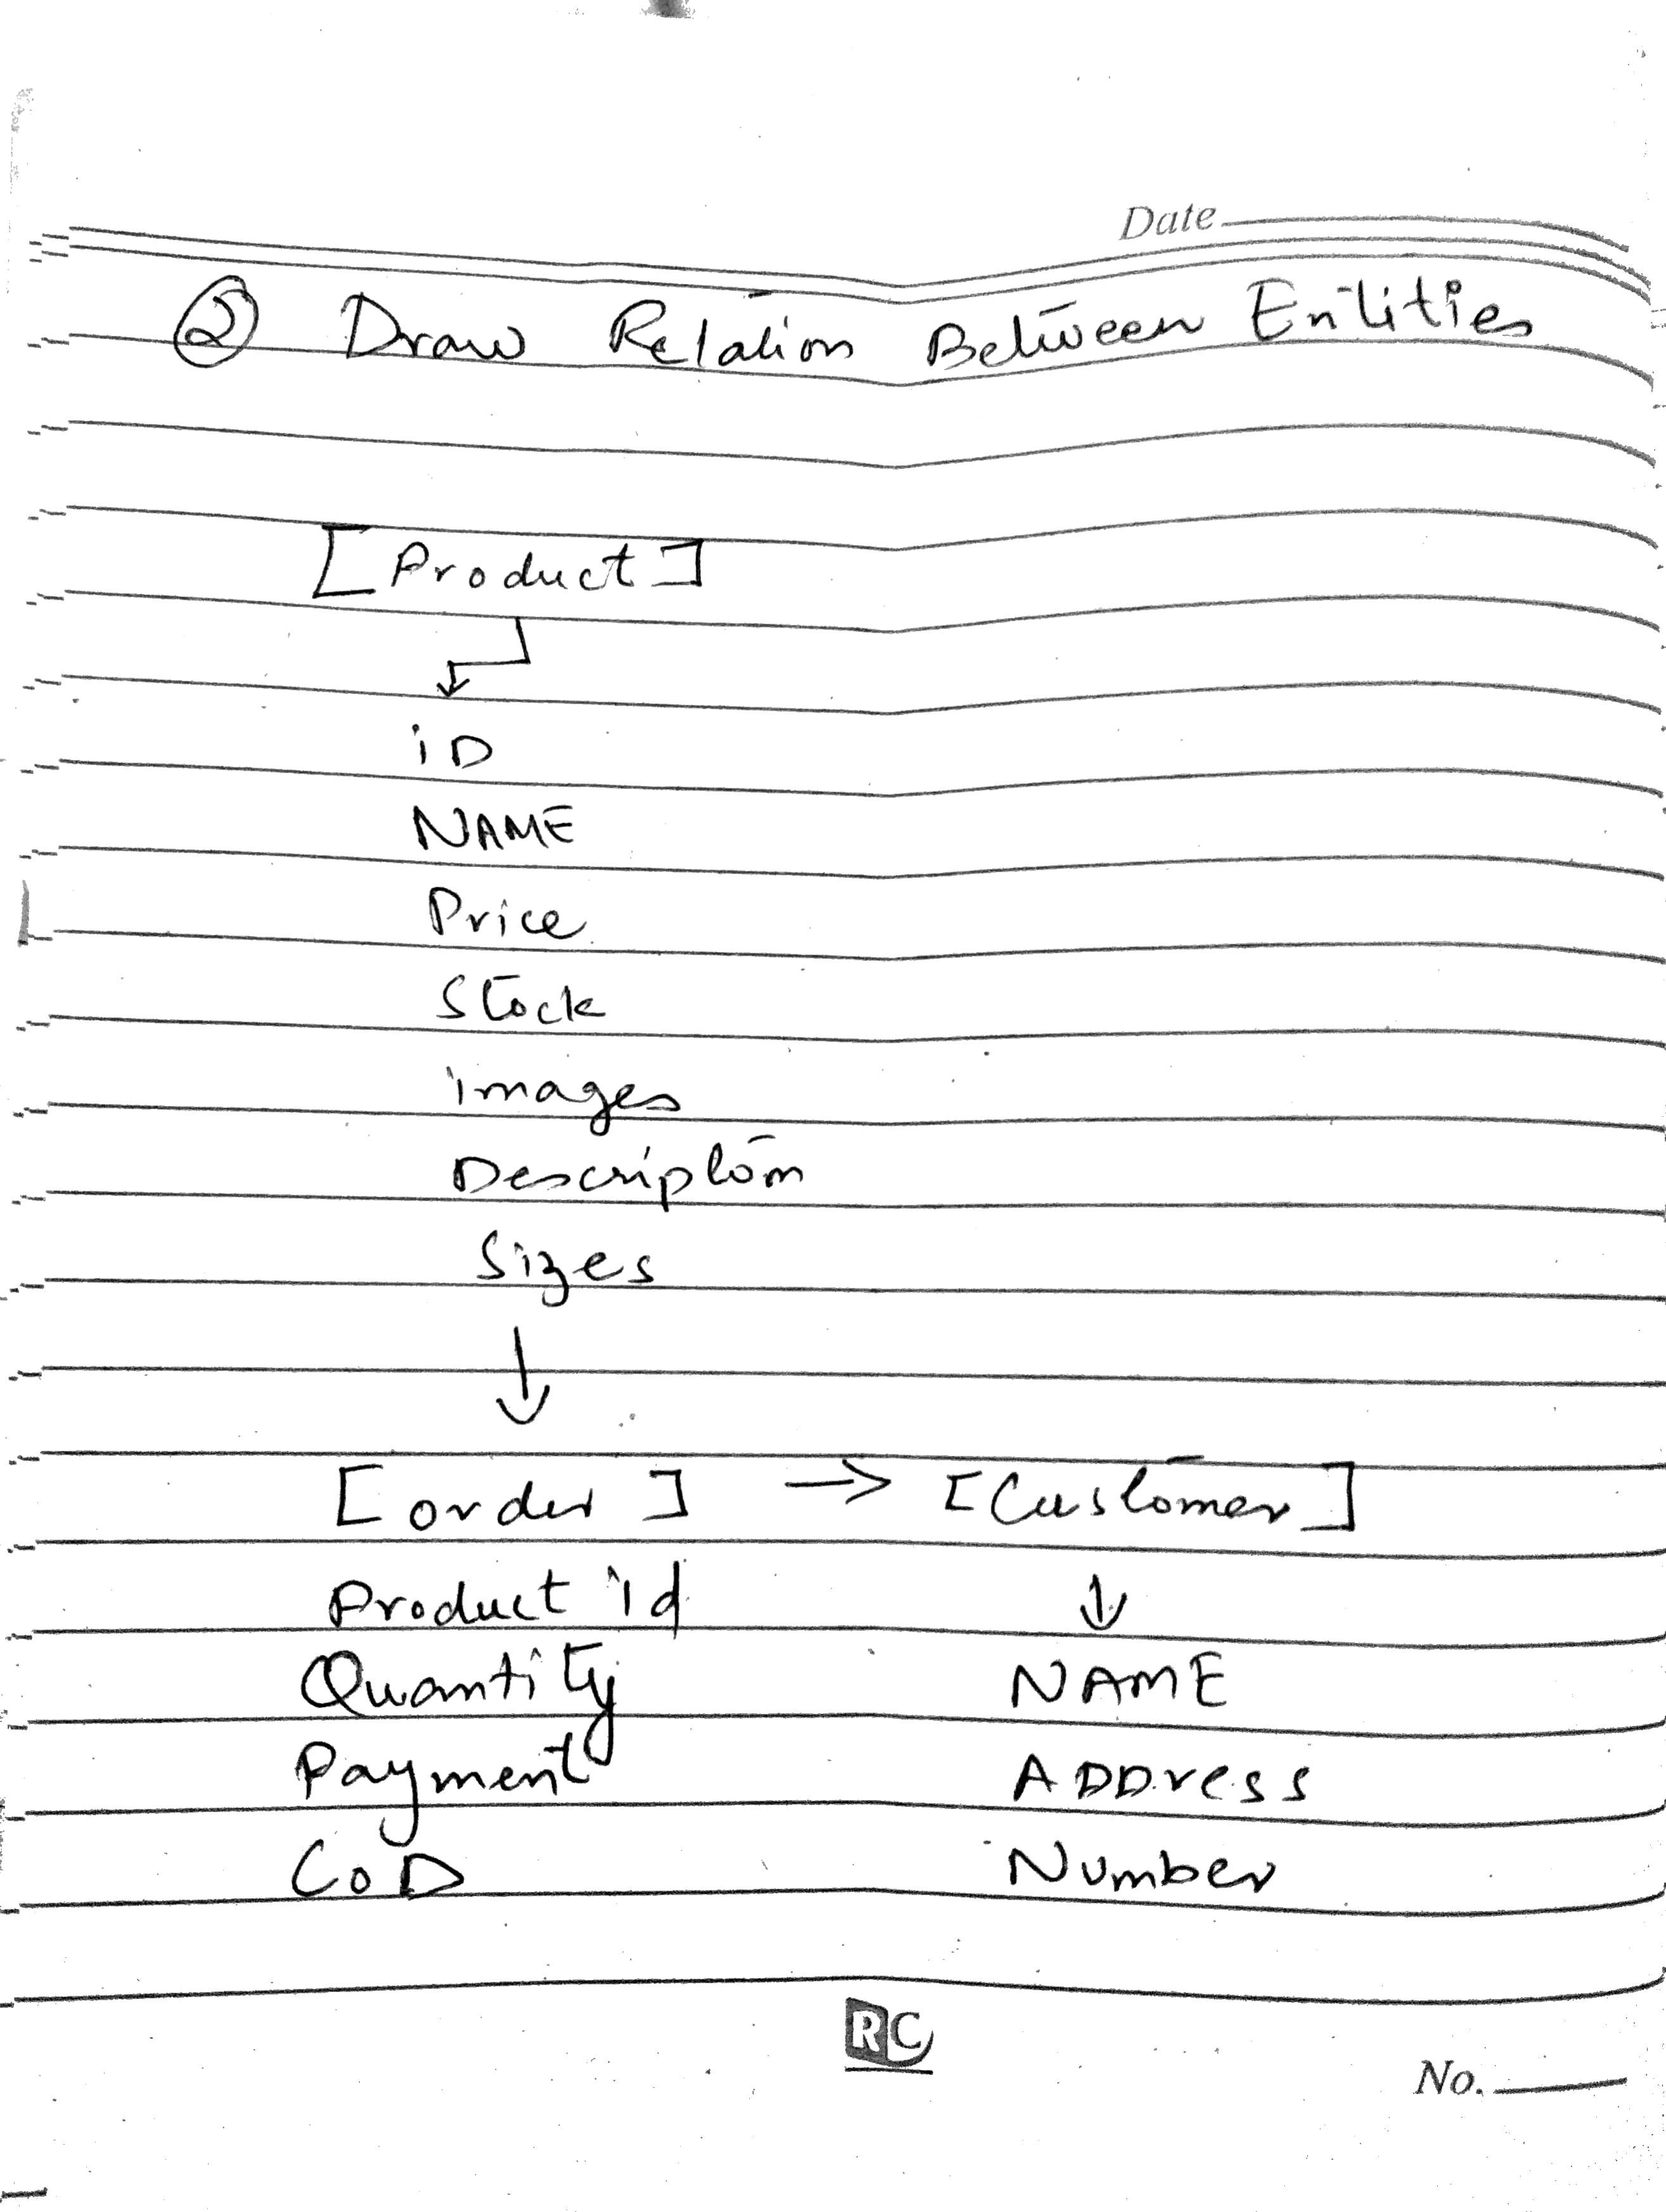 Date
② Draw Relation Between Entities
[Product]
iD
NAME
Price
Stock
images
Description
Sizes
[order] → [Customer]
Product id
Quantity NAME
Payment ADDress
CoD Number
RC
No.